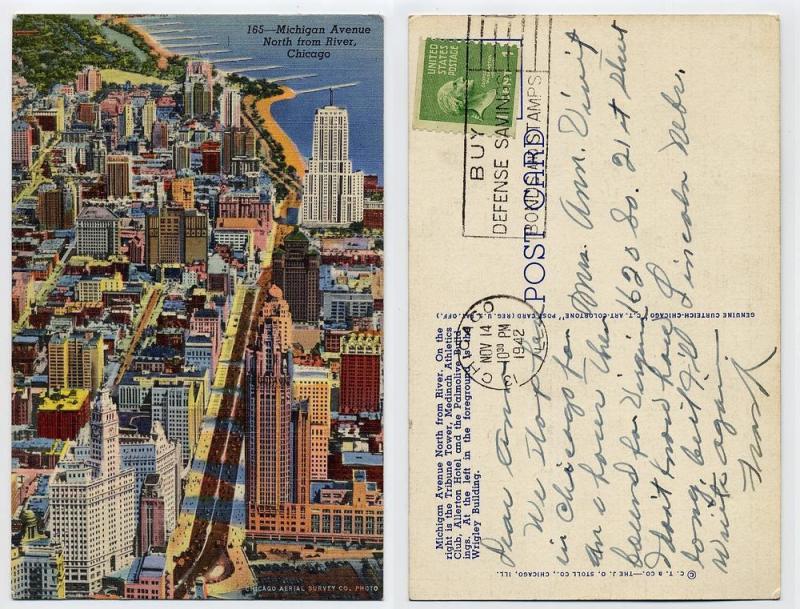 165—Michigan Avenue
North from River,
Chicago
CHICAGO AERIAL SURVEY CO. PHOTO
UNITED STATES POSTAGE
1 CENT
BUY
DEFENSE SAVINGS
BONDS AND STAMPS
CHICAGO
NOV 14
10 30 PM
1942
POST CARD
Michigan Avenue North from River. On the
right is the Tribune Tower, Medinah Athletics
Club, Allerton Hotel and the Palmolive Build-
ings. At the left in the foreground is the
Wrigley Building.
GENUINE CURTEICH-CHICAGO "C. T. ART-COLORTONE" POST CARD (REG. U.S. PAT. OFF.)
© C. T. & CO.—THE J. O. STOLL CO., CHICAGO, ILL.
Dear Ann
We stop here
in Chicago for
an hour then
bound for Virginia
I don't know how
long but I'll
write again
Frank
Mrs. Ann. Vinit
1620 So. 21st Street
Lincoln Nebr.